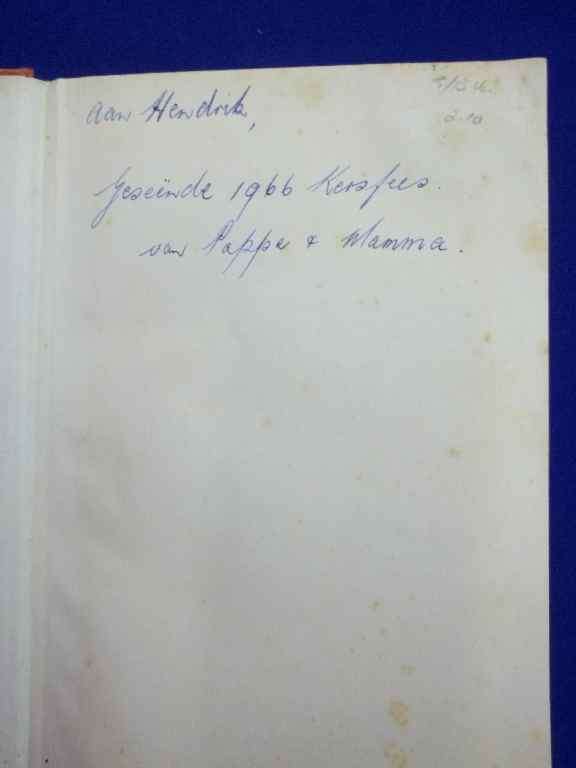 aan Hendrik,
Geseënde 1966 Kersfees.
van Pappa & Mamma.